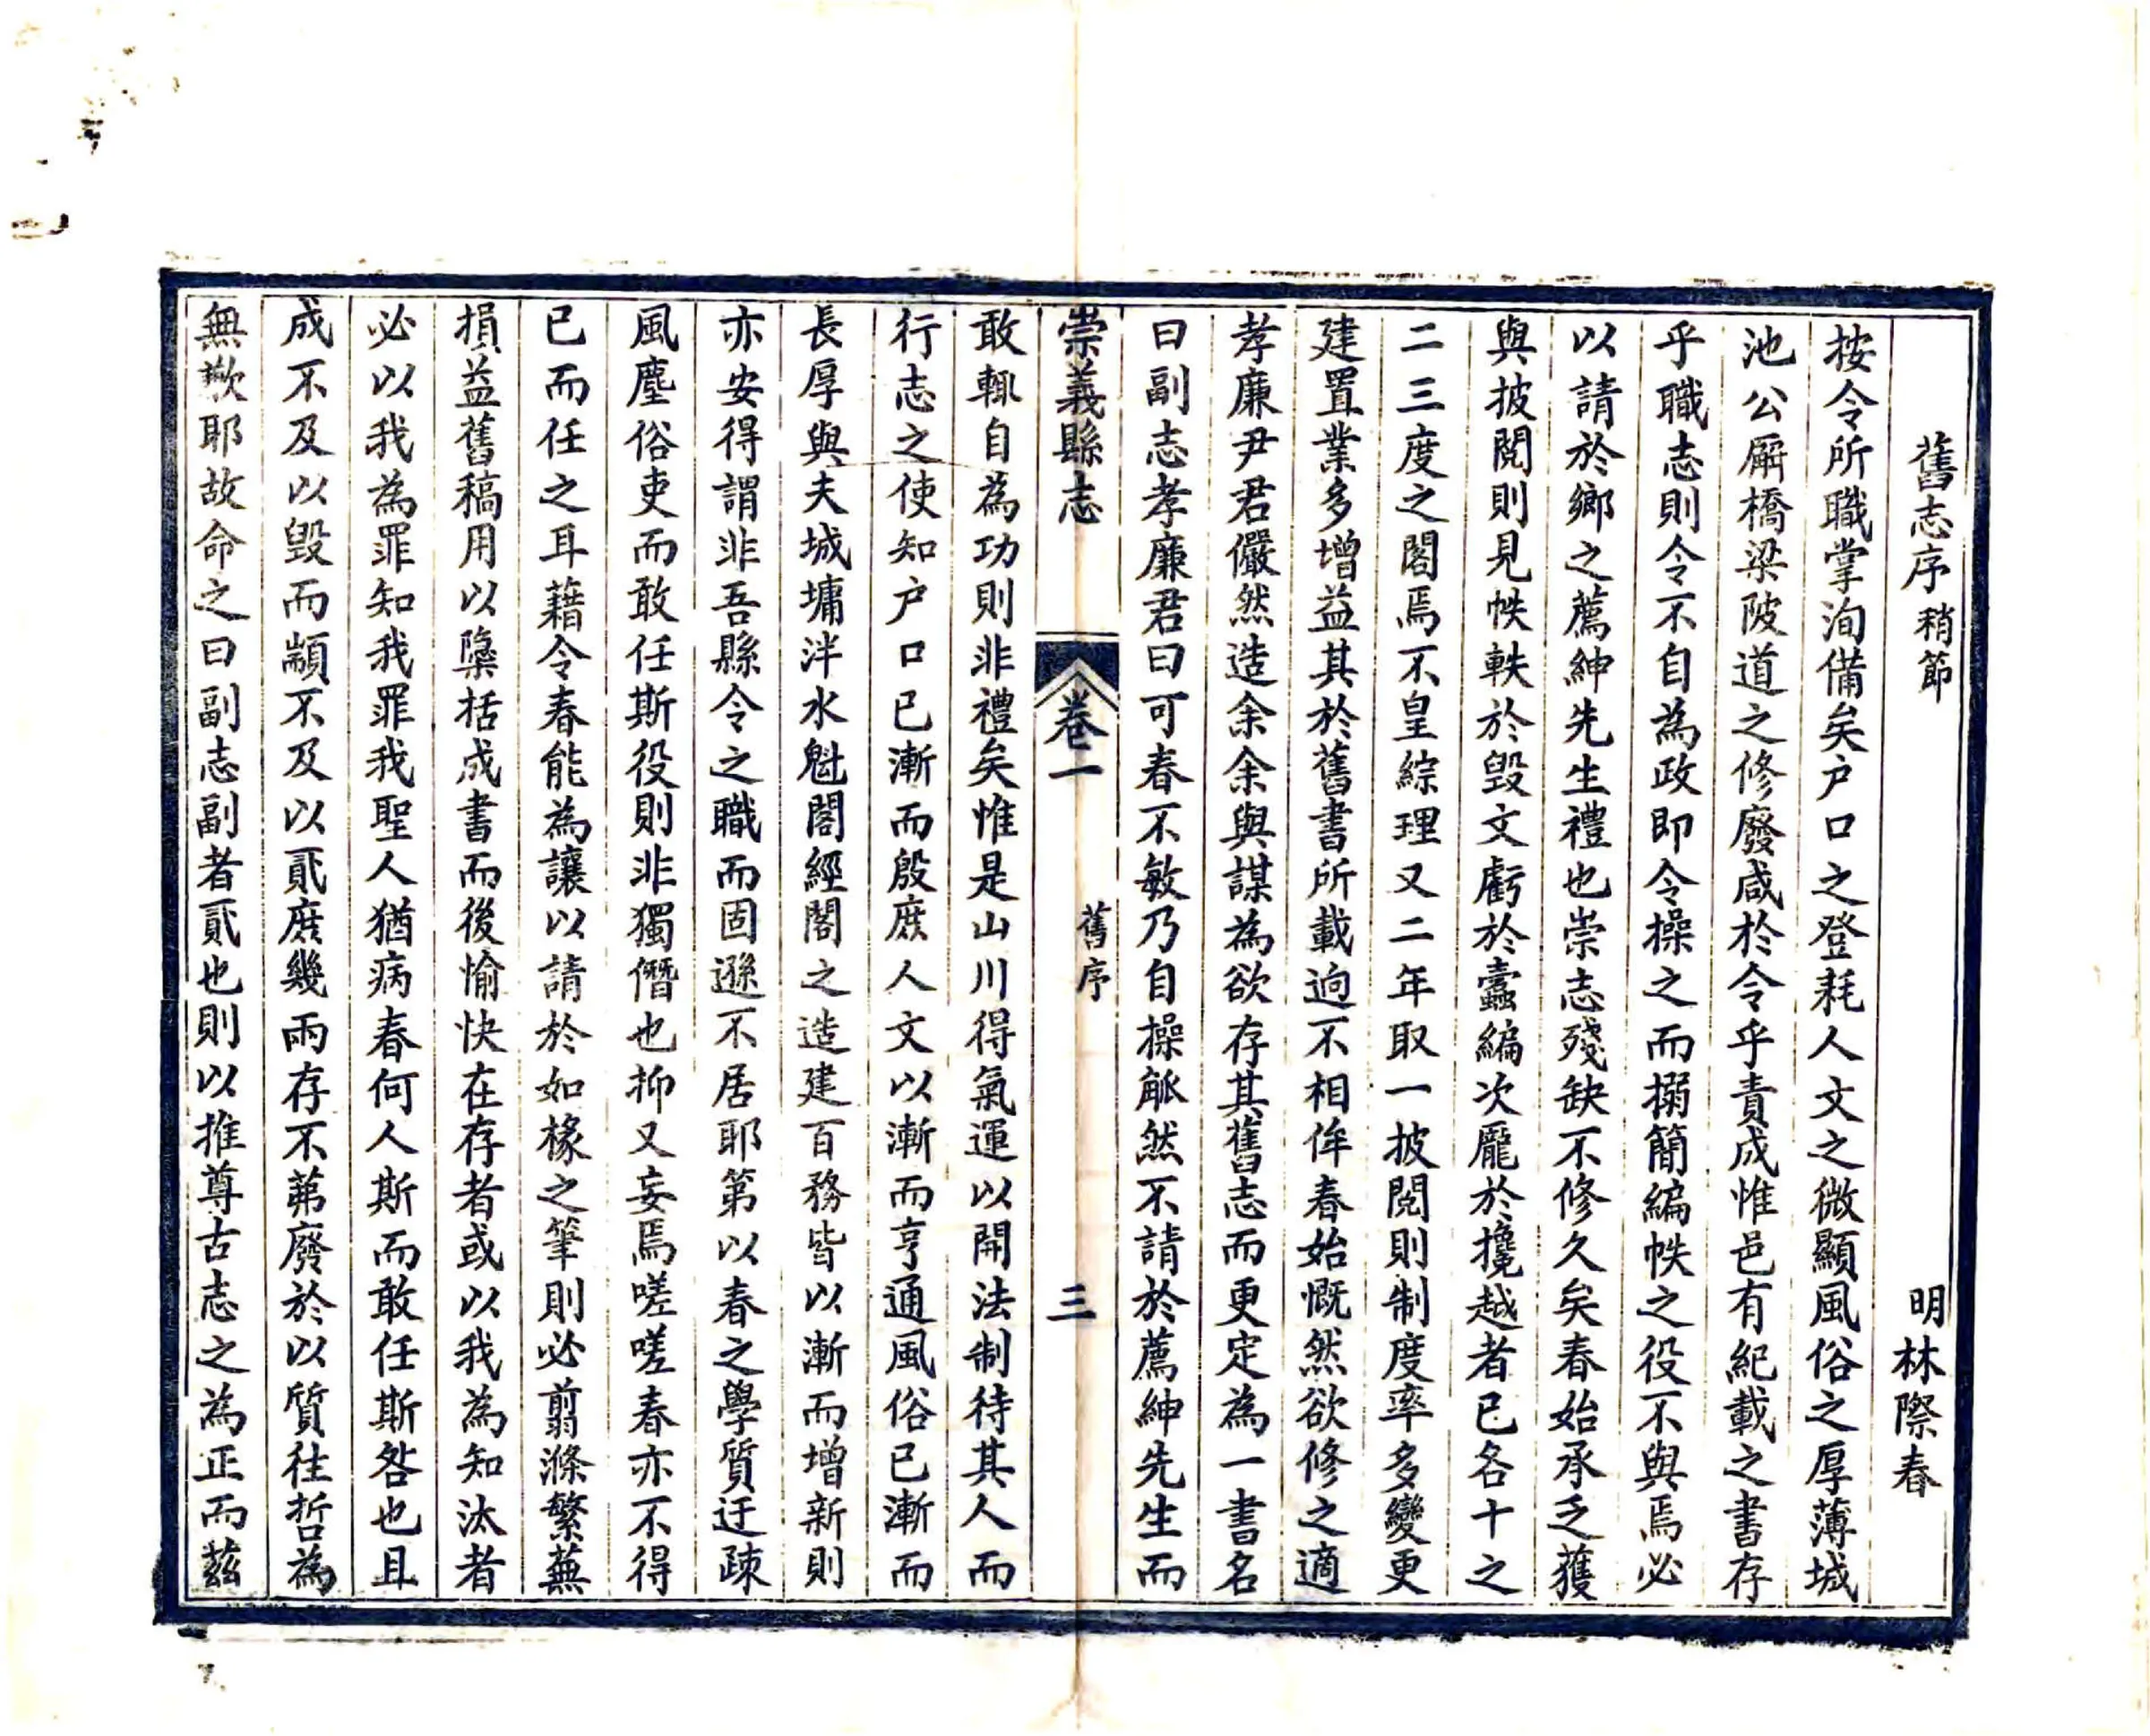 舊志序稍節 明林際春
按令所職掌洵備矣户口之登耗人文之微顯風俗之厚薄城
池公廨橋梁陂道之修廢咸於令乎責成惟邑有紀載之書存
乎職志則令不自為政即令操之而搦簡編帙之役不與焉必
以請於鄉之薦紳先生禮也崇志殘缺不修久矣春始承乏獲
與披閱則見帙軼於毀文虧於蠹編次龎於攙越者已各十之
二三度之閣焉不皇綜理又二年取一披閱則制度率多變更
建置業多增益其於舊書所載逈不相侔春始慨然欲修之適
孝廉尹君儼然造余余與謀為欲存其舊志而更定為一書名
曰副志孝廉君曰可春不敏乃自操觚然不請於薦紳先生而
崇義縣志 卷一 舊序 三
敢輒自為功則非禮矣惟是山川得氣運以開法制待其人而
行志之使知户口已漸而殷庶人文以漸而亨通風俗已漸而
長厚與夫城墉泮水魁閣經閣之造建百務皆以漸而增新則
亦安得謂非吾縣令之職而固遜不居耶第以春之學質迂疎
風塵俗吏而敢任斯役則非獨僭也抑又妄焉嗟嗟春亦不得
已而任之耳藉令春能為讓以請於如椽之筆則必翦滌繁蕪
損益舊稿用以櫽括成書而後愉快在存者或以我為知汰者
必以我為罪知我罪我聖人猶病春何人斯而敢任斯咎也且
成不及以毀而顓不及以貳庶幾兩存不苐廢於以質往哲為
無歉耶故命之曰副志副者貳也則以推尊古志之為正而茲